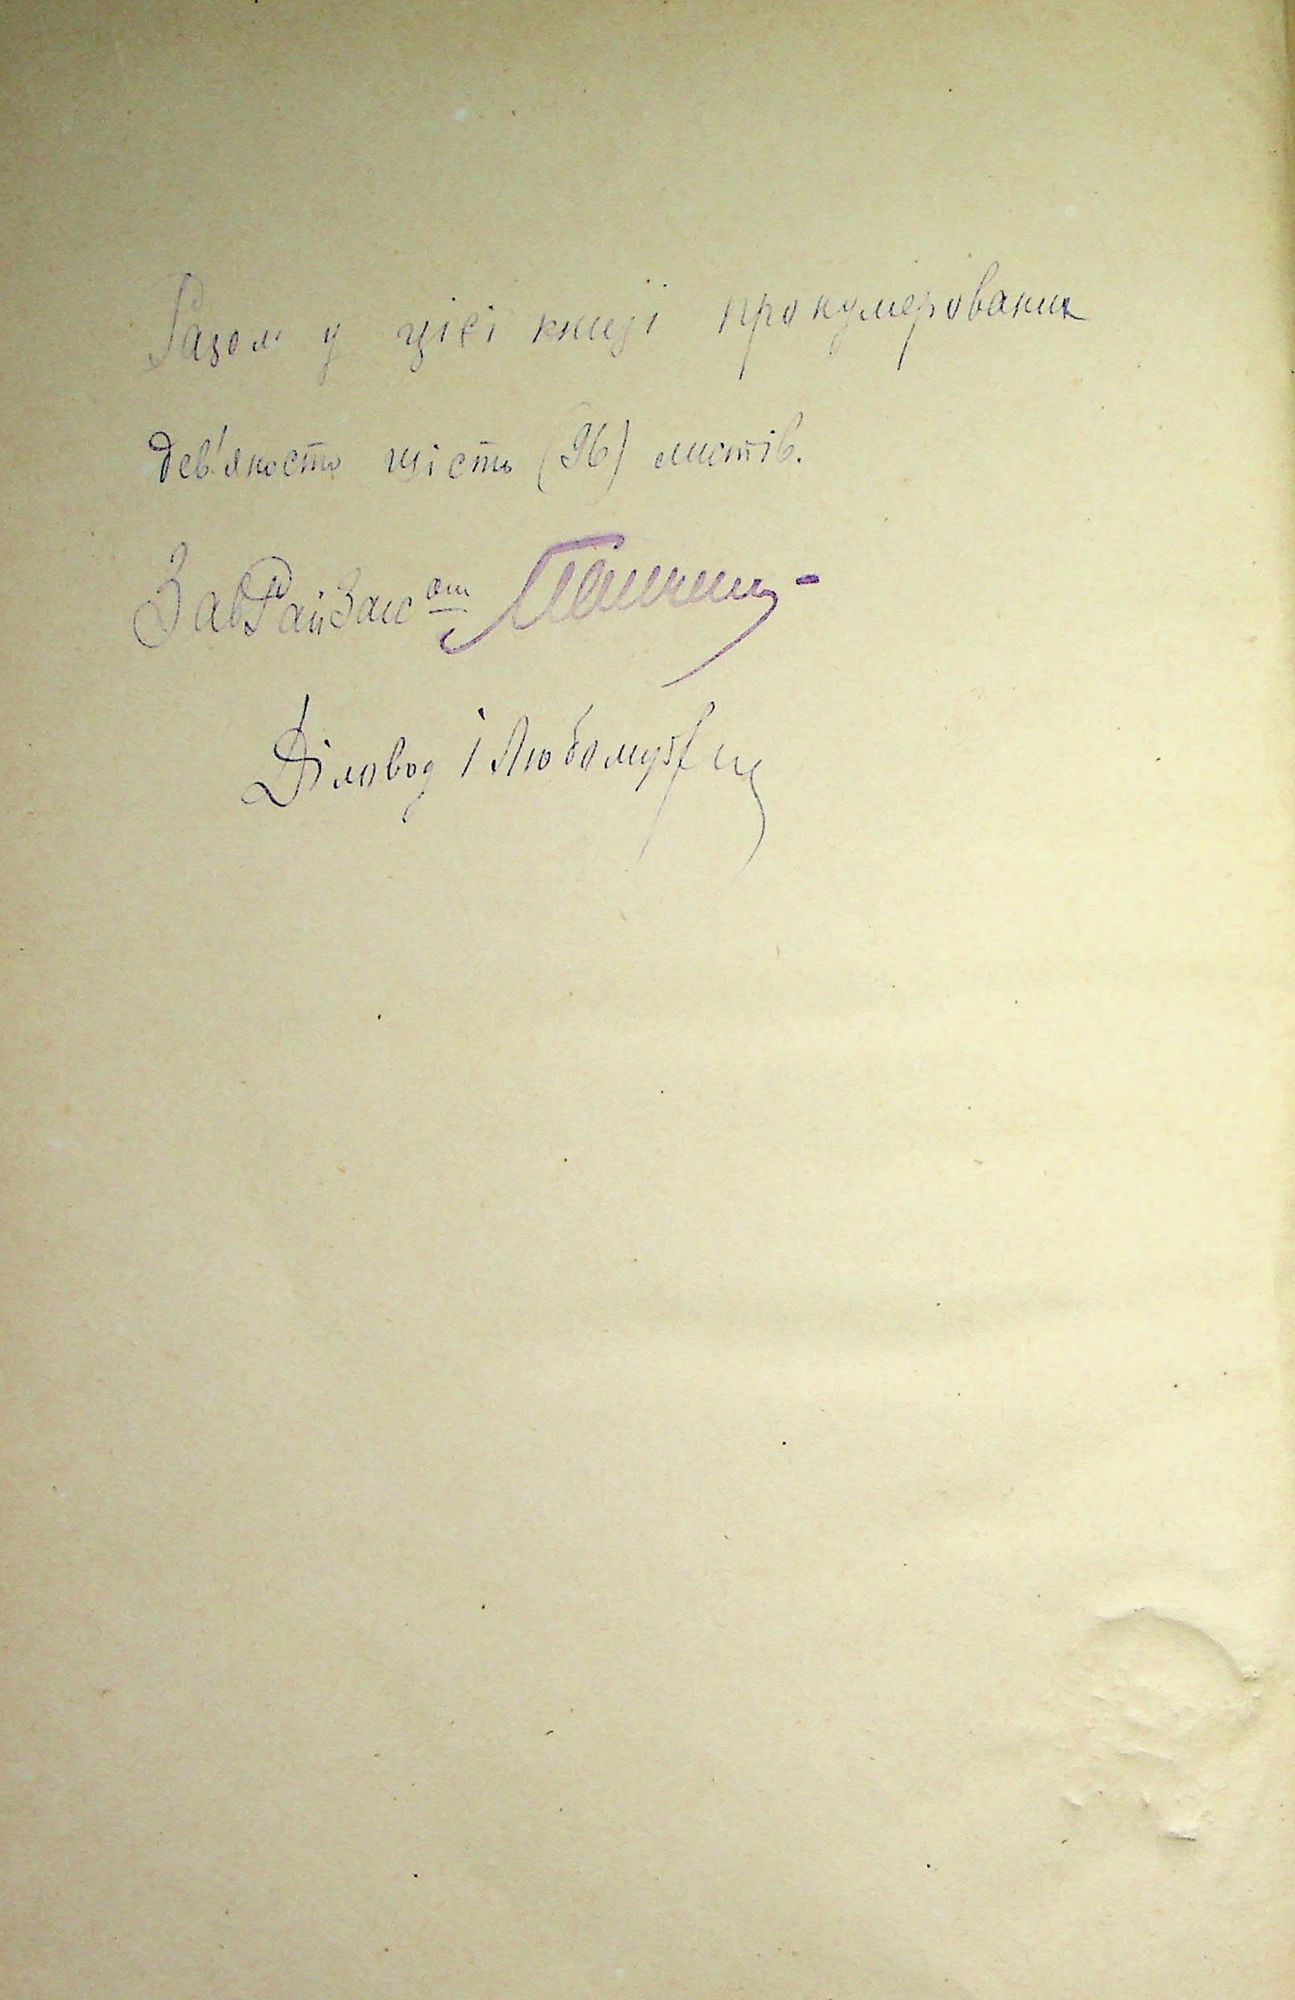 Разом у цієі книзі пронумерованих
дев'яносто шість (96) листів.
ЗавРайЗаг
Діловод І Любому